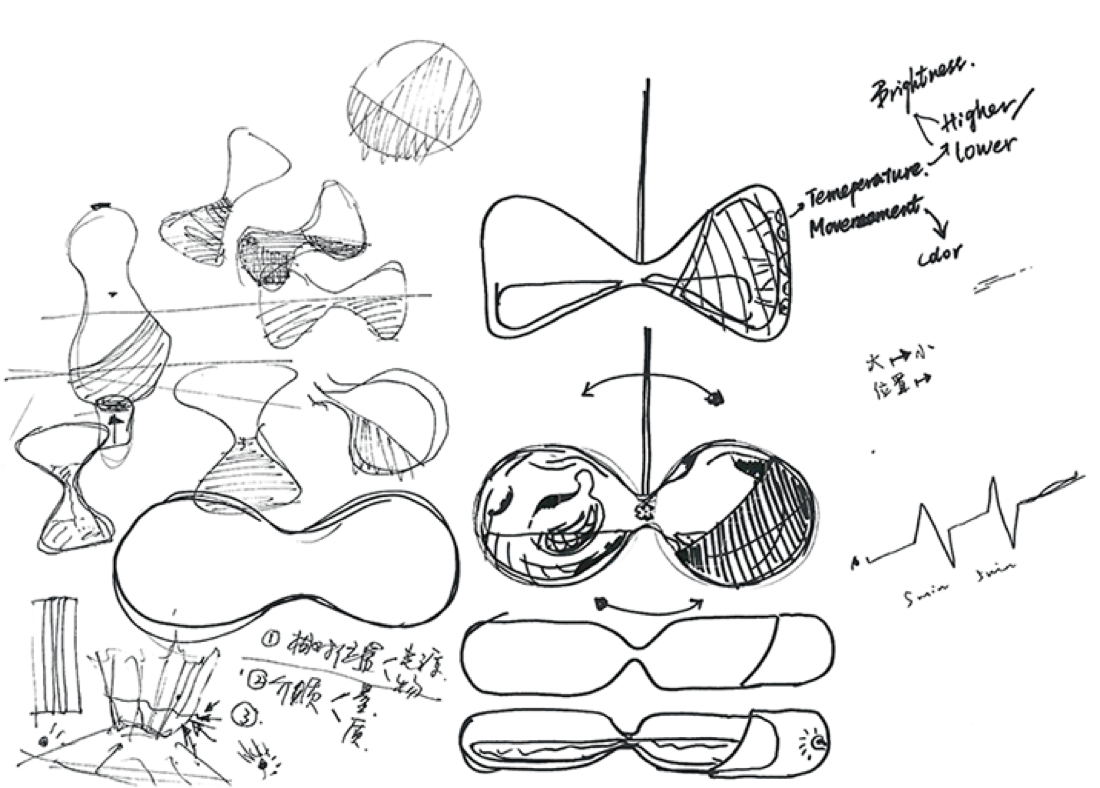 Brightness.
Higher/
lower
Temeperature.
Movement
color
大↦小
位置↦
5min 5min
① 相对位置 光源
水分
② 介质 量
质
③.